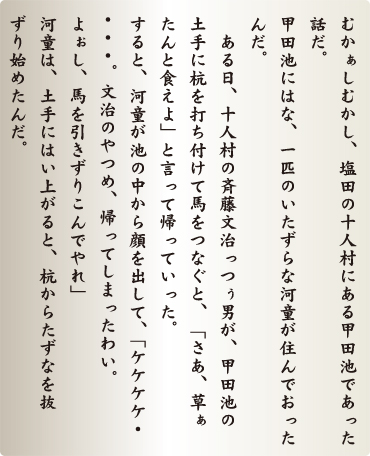 むかぁしむかし、塩田の十人村にある甲田池であった
話だ。
甲田池にはな、一匹のいたずらな河童が住んでおった
んだ。
ある日、十人村の斉藤文治っつぅ男が、甲田池の
土手に杭を打ち付けて馬をつなぐと、「さあ、草ぁ
たんと食えよ」と言って帰っていった。
すると、河童が池の中から顔を出して、「ケケケケ・
・・・。文治のやつめ、帰ってしまったわい。
よぉし、馬を引きずりこんでやれ」
河童は、土手にはい上がると、杭からたずなを抜
ずり始めたんだ。